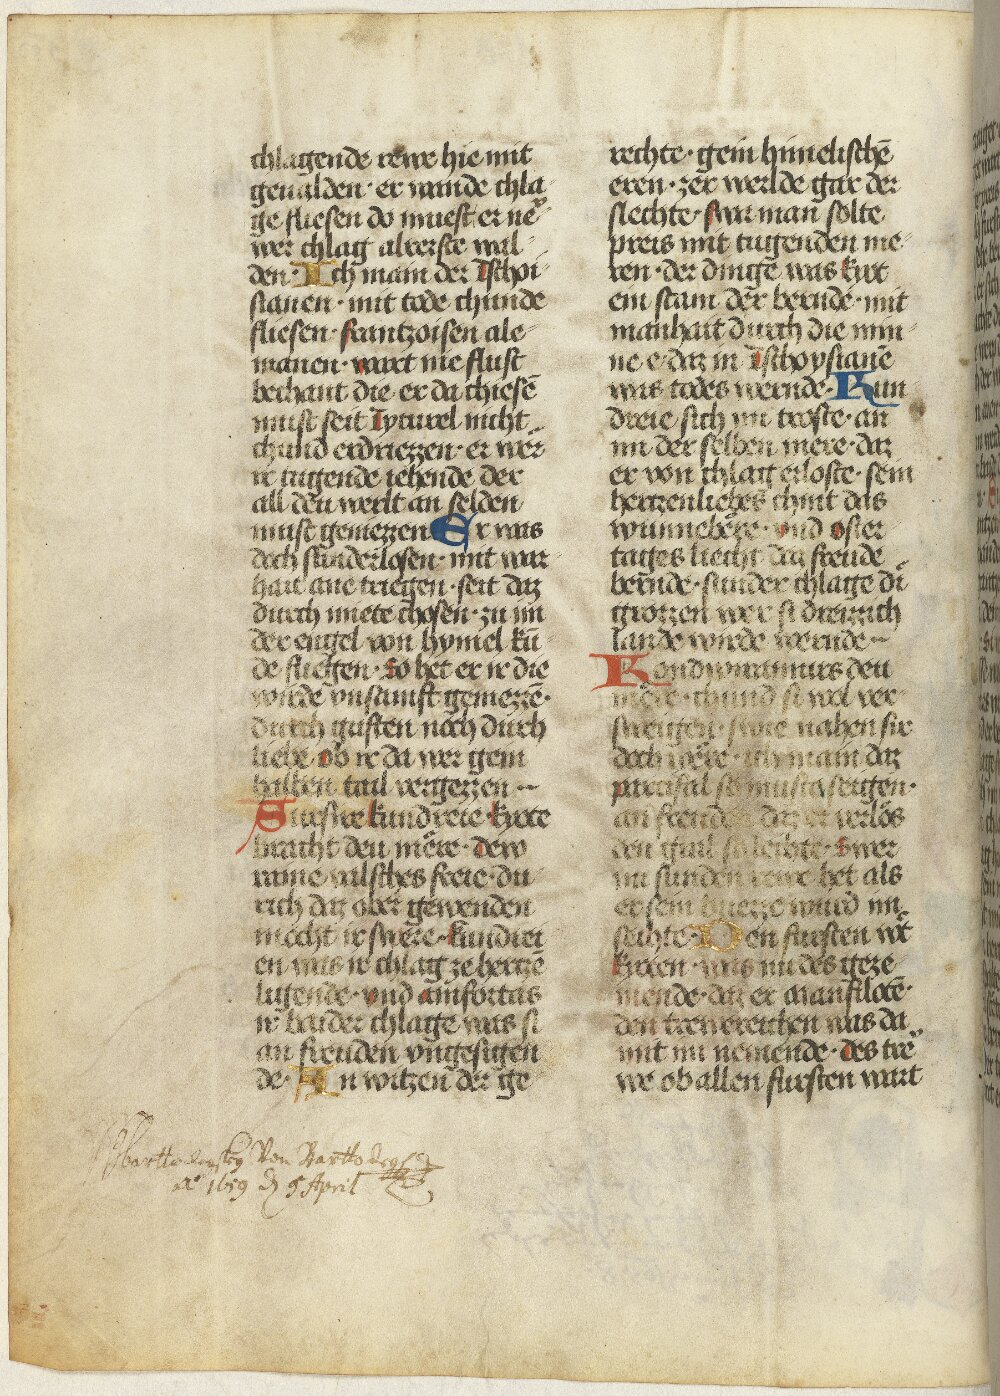 chlagende rewe hie mit
gewalden · er wande chla-
ge fliesen do muest er ne-
wer chlag alverste wal-
den · Ich main der Tschoi-
slanen · mit tode chunde
fliesen · frantzoisen ale-
manen · wart nie flust
bechant die er da chiesē
must seit Tyturel nicht
chund erdriezzen · er wer
ir tugende iehende der
all den werlt an selden
must geniezzen Er was
doch sunder losen · mit war-
hait ane triegen · seit daz
durch miete chosen · zu im
der engel von hymel kū-
de fliegen · so het er ir die
wirde vnsanft gemezzē ·
durch gusten noch durch
liebe ob ir da wer gein
halben tail vergezzen
Surswe kundreie · hirte
bracht deu mere · dew
raine valsches freie · du-
rich daz ober gewenden
mocht ir swere · kundrei
en was ir chlag ze hertzē
lugende · vnd amfortas
ir baider chlage was si
an freuden vngesigen
de · An witzen der ge-
rechte · gein himelischē
eren · zer werlde gar der
slechte · swa man solte
preis mit tugenden me-
ren · der dinge was kurt
ein stam der bernde · mit
manhait durch die min-
ne e daz in Tschoysianē
was todes wernde · Kun
dreie sich im troste · an
im der selben mere · daz
er von chlag erloste · sein
hertzenliebes chint das
wunnebere · vnd oster
tages liecht daz freude
bernde · sunder chlage di
grozzen wer si dreizzich
lande wirde wernde
Kondwiramurs deu
mere · chund si wol ver-
sweigen · swie nahen sie
doch were · ich main daz
parcifal so must a seigen ·
an freuden daz er verlos
den gral so leihte · Swer
im sunden rewe het als
er sein buezze wurd im
seihte · Den fursten vō
kurten · was nu des geze-
mende · daz er manfilote ·
den trewereichen was da
mit im nemende · des tre-
we ob allen fursten wart
Von
Ao 1659 d 9 April